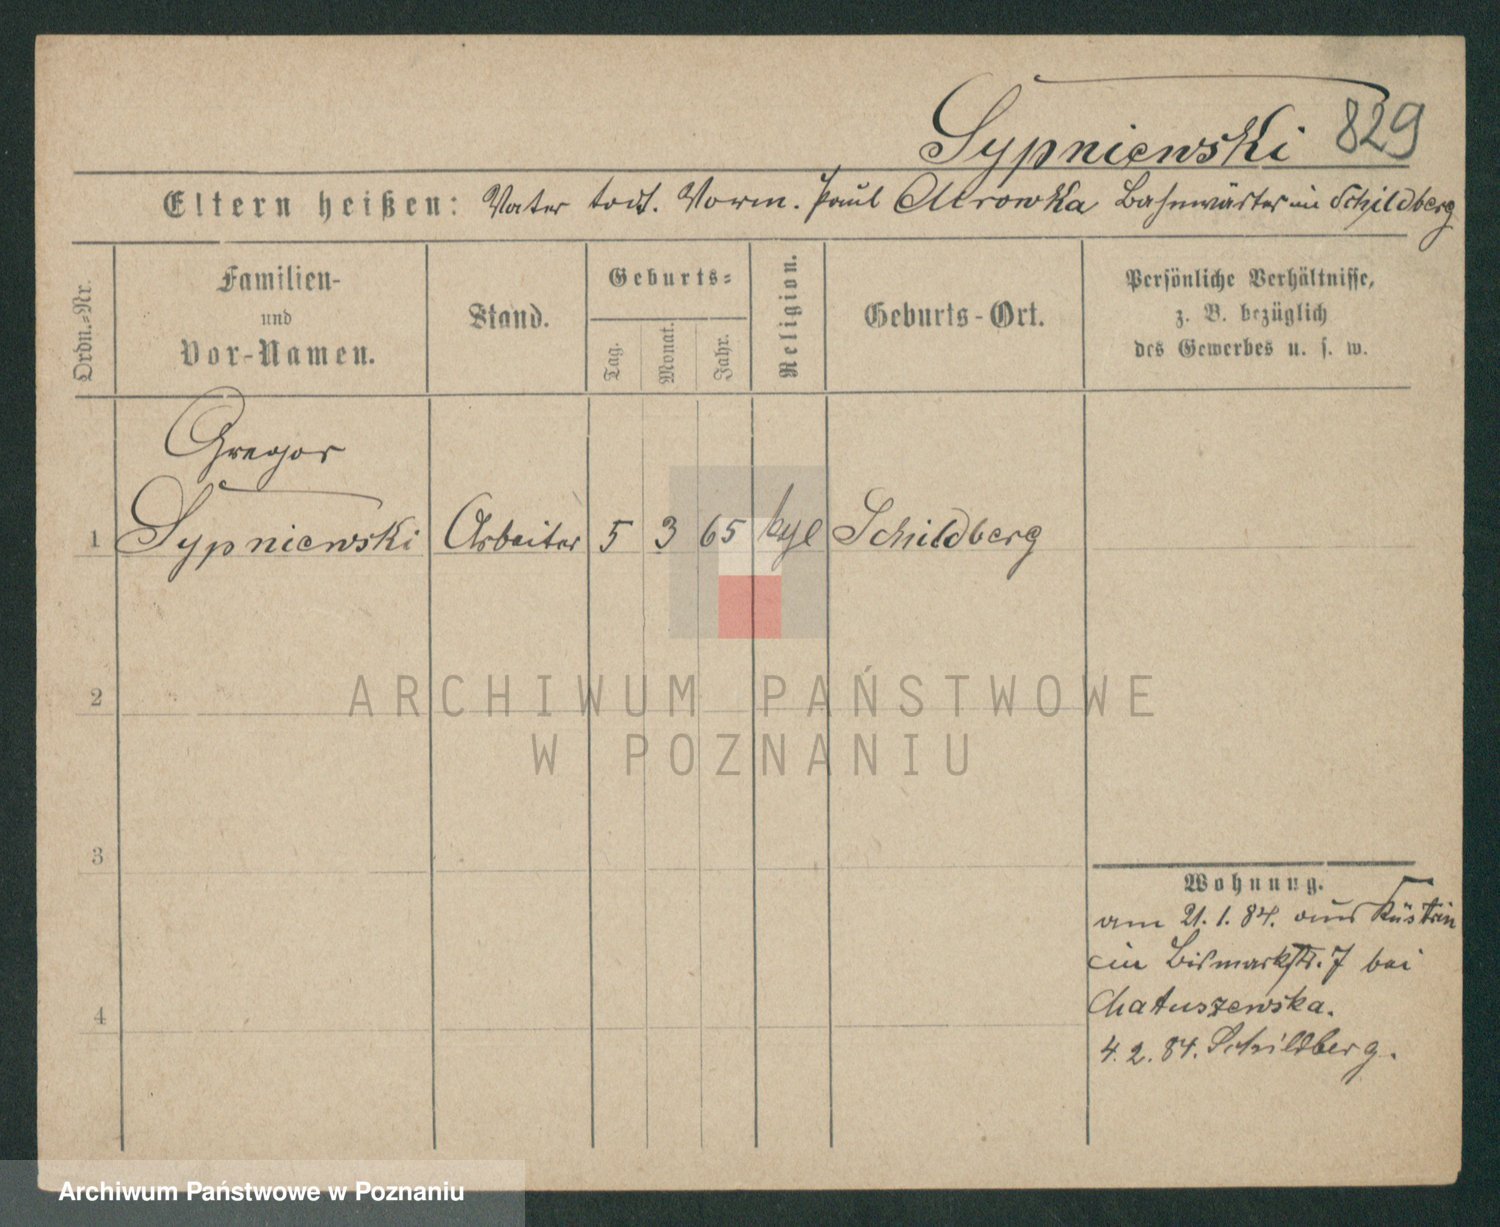 Sypniewski 829
Eltern heißen: Vater todt. Vorm. Paul Mrowka Bahnwärter in Schildberg
Ordn.-Nr.
Familien-
und
Vor-Namen.
Stand.
Geburts-
Tag.
Monat.
Jahr.
Religion.
Geburts-Ort.
Persönliche Verhältnisse,
z. B. bezüglich
des Gewerbes u. s. w.
Gregor
1 Sypniewski Arbeiter 5 3 65 Schildberg
ARCHIWUM PAŃSTWOWE
W POZNANIU
2
3
4
Wohnung.
am 21.1.84. aus Küstrin
in Bismarkstr. 7 bei
Matuszewska.
4.2.84. Schildberg.
Archiwum Państwowe w Poznaniu